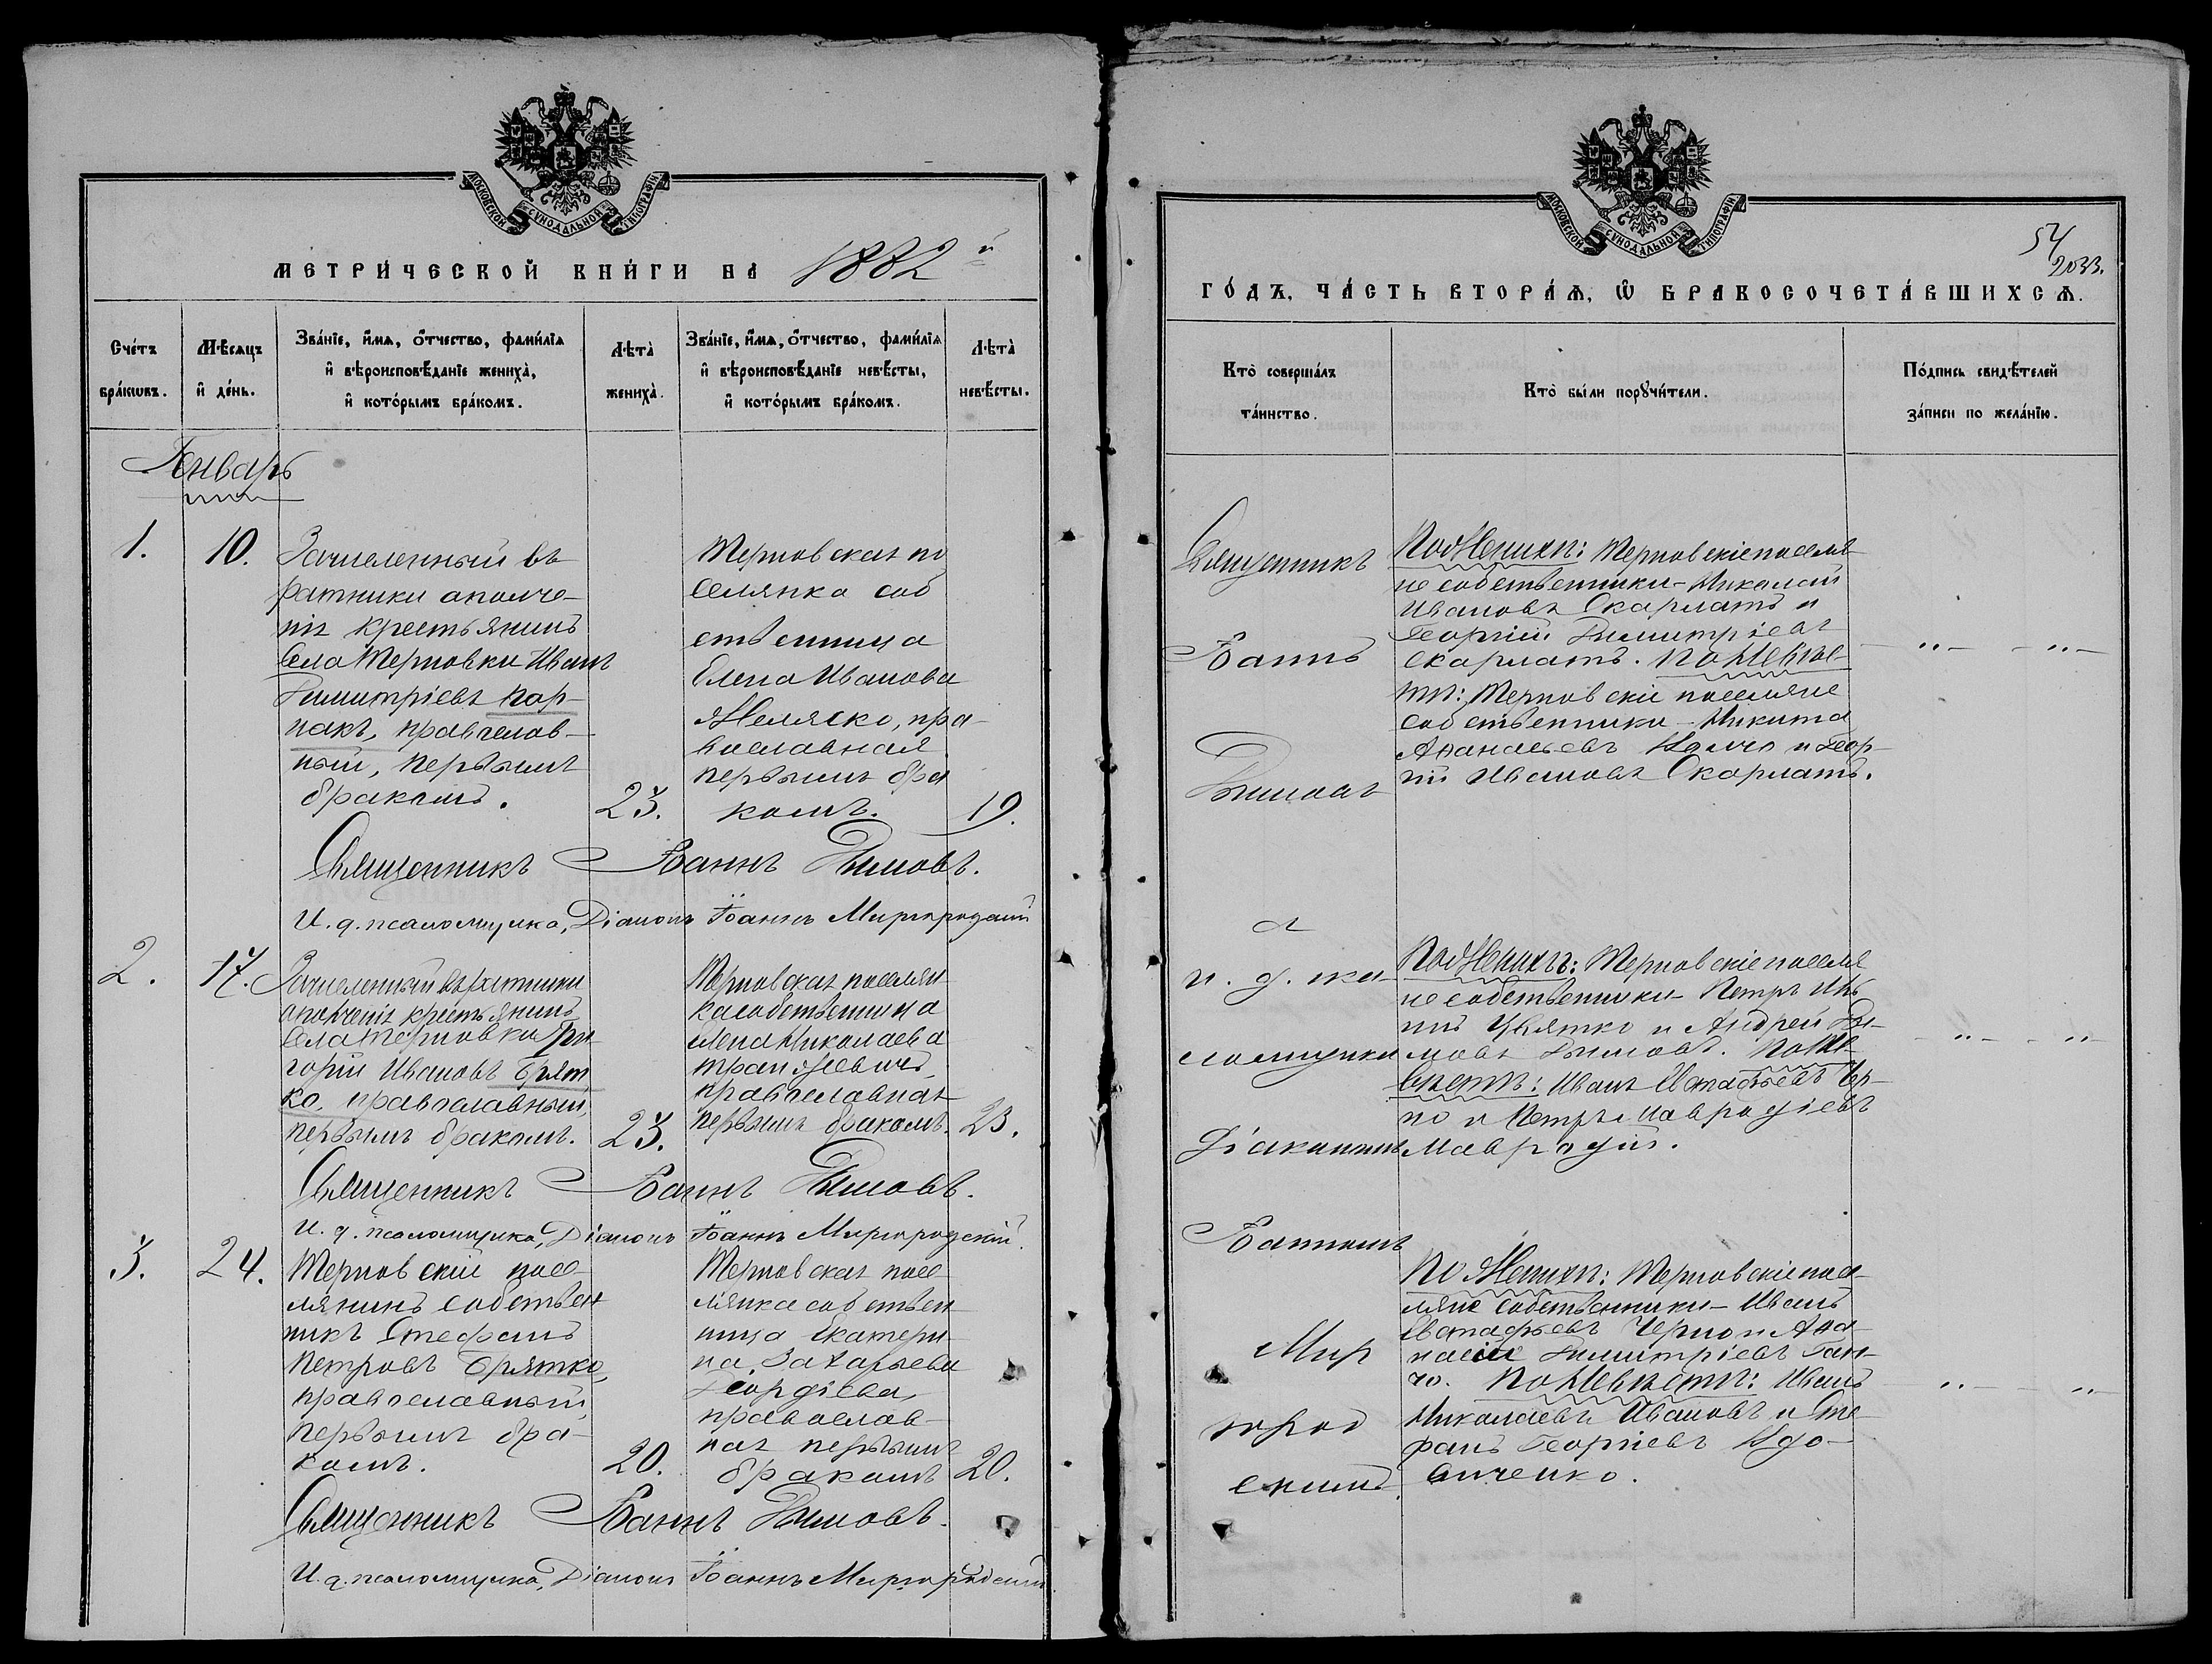 МОСКОВСКОЙ СУНОДАЛЬНОЙ ТИПОГРАФІИ
МЕТРИ́ЧЕСКОЙ КНИ́ГИ НА 1882 й
Сче́тъ бра́кѡвъ.
Мѣ́сѧцъ и҆ де́нь.
Зва́нїе, и҆́мѧ, ѻ҆́тчество, фами́лїѧ
и҆ вѣроисповѣ́данїе жениха̀,
и҆ кото́рымъ бра́комъ.
Лѣта̀
жениха̀.
Зва́нїе, и҆́мѧ, ѻ҆́тчество, фами́лїѧ
и҆ вѣроисповѣ́данїе невѣ́сты,
и҆ кото́рымъ бра́комъ.
Лѣта̀
невѣ́сты.
Январь
1.
10.
Зачисленный въ
ратники ополче-
нія крестьянинъ
села Терновки Иванъ
Димитріевъ Пор-
накъ, православ-
ный, первымъ
бракомъ.
23.
Терновская по
селянка соб
ственница
Елена Иванова
Желяско, пра-
вославная
первымъ бра
комъ.
19.
Священникъ Іоаннъ Дымовъ.
И. д. псаломщика, Діаконъ Іоаннъ Миргородскій
2.
17.
Зачисленный въ ратники
ополченія крестьянинъ
села Терновки Гри
горій Ивановъ Брят
ко, православный,
первымъ бракомъ.
23.
Терновская поселян
ка собственница
Елена Николаева
православная
первымъ бракомъ.
23.
Священникъ Іоаннъ Дымовъ.
И. д. псаломщика, Діаконъ Іоаннъ Миргородскій.
3.
24.
Терновскій посе
лянинъ собствен
никъ Стефанъ
Петровъ Брятко,
православный,
первымъ бра-
комъ.
20.
Терновская посе
лянка собствен
ница Екатери
на Захарьева
Георгіева,
православ-
ная первымъ
бракомъ
20.
Священникъ Іоаннъ Дымовъ.
И. д. псаломщика, Діаконъ Іоаннъ Миргородскій
МОСКОВСКОЙ СУНОДАЛЬНОЙ ТИПОГРАФІИ
54
2033.
ГО́ДЪ, ЧА́СТЬ ВТОРА́Ѧ, Ѡ҆ БРАКОСОЧЕТА́ВШИХСѦ.
Кто̀ соверша́лъ
та́инство.
Кто̀ бы́ли порꙋчи́тели.
По́дпись свидѣ́телей
за́писи по жела́нїю.
Священникъ
Іоаннъ
Дымовъ
с
и. д. пса-
ломщика
Діакономъ
Іоанномъ
Мир
город
скимъ.
По Женихѣ: Терновскіе поселя
не собственники - Николай
Ивановъ Скарлатъ и
Георгій Димитріевъ
Скарлатъ. По Невѣс-
тѣ: Терновскіе поселяне
собственники - Никита
Афанасьевъ и Геор-
гій Ивановъ Скарлатъ.
" - - " -
По Женихѣ: Терновскіе поселя
не собственники - Петръ Ива
нъ Цвятко и Андрей Ды-
мовъ Дымовъ. По Не
вѣстѣ: Иванъ Евстафьевъ Чер-
но и Петръ Мавродіевъ
Мавродій.
" - - "
По Женихѣ: Терновскіе посе-
ляне собственники - Иванъ
Евстафьевъ Черно и Афа-
насій Димитріевъ Ган-
чо. По Невѣстѣ: Иванъ
Николаевъ Ивановъ и Сте-
фанъ Георгіевъ Вдо-
виченко.
" - - " -